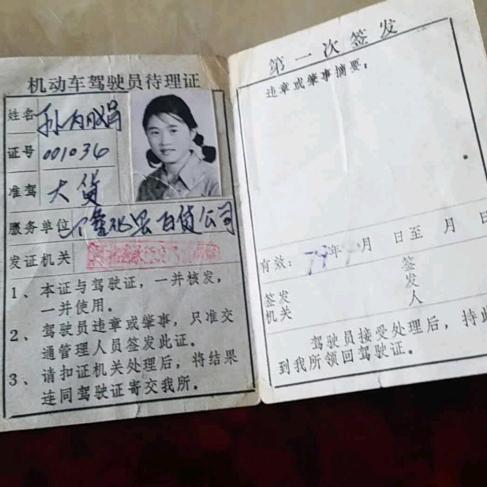 机动车驾驶员待理证
姓名 孙 娟
证号 001036
准驾 大货
服务单位 县百货公司
发证机关
1、本证与驾驶证，一并核发，
一并使用。
2、驾驶员违章或肇事，只准交
通管理人员签发此证。
3、请扣证机关处理后，将结果
连同驾驶证寄交我所。
第一次签发
违章或肇事摘要：
有效： 年 月 日至 月 日
签发
机关
签
发
人
驾驶员接受处理后，持此
到我所领回驾驶证。